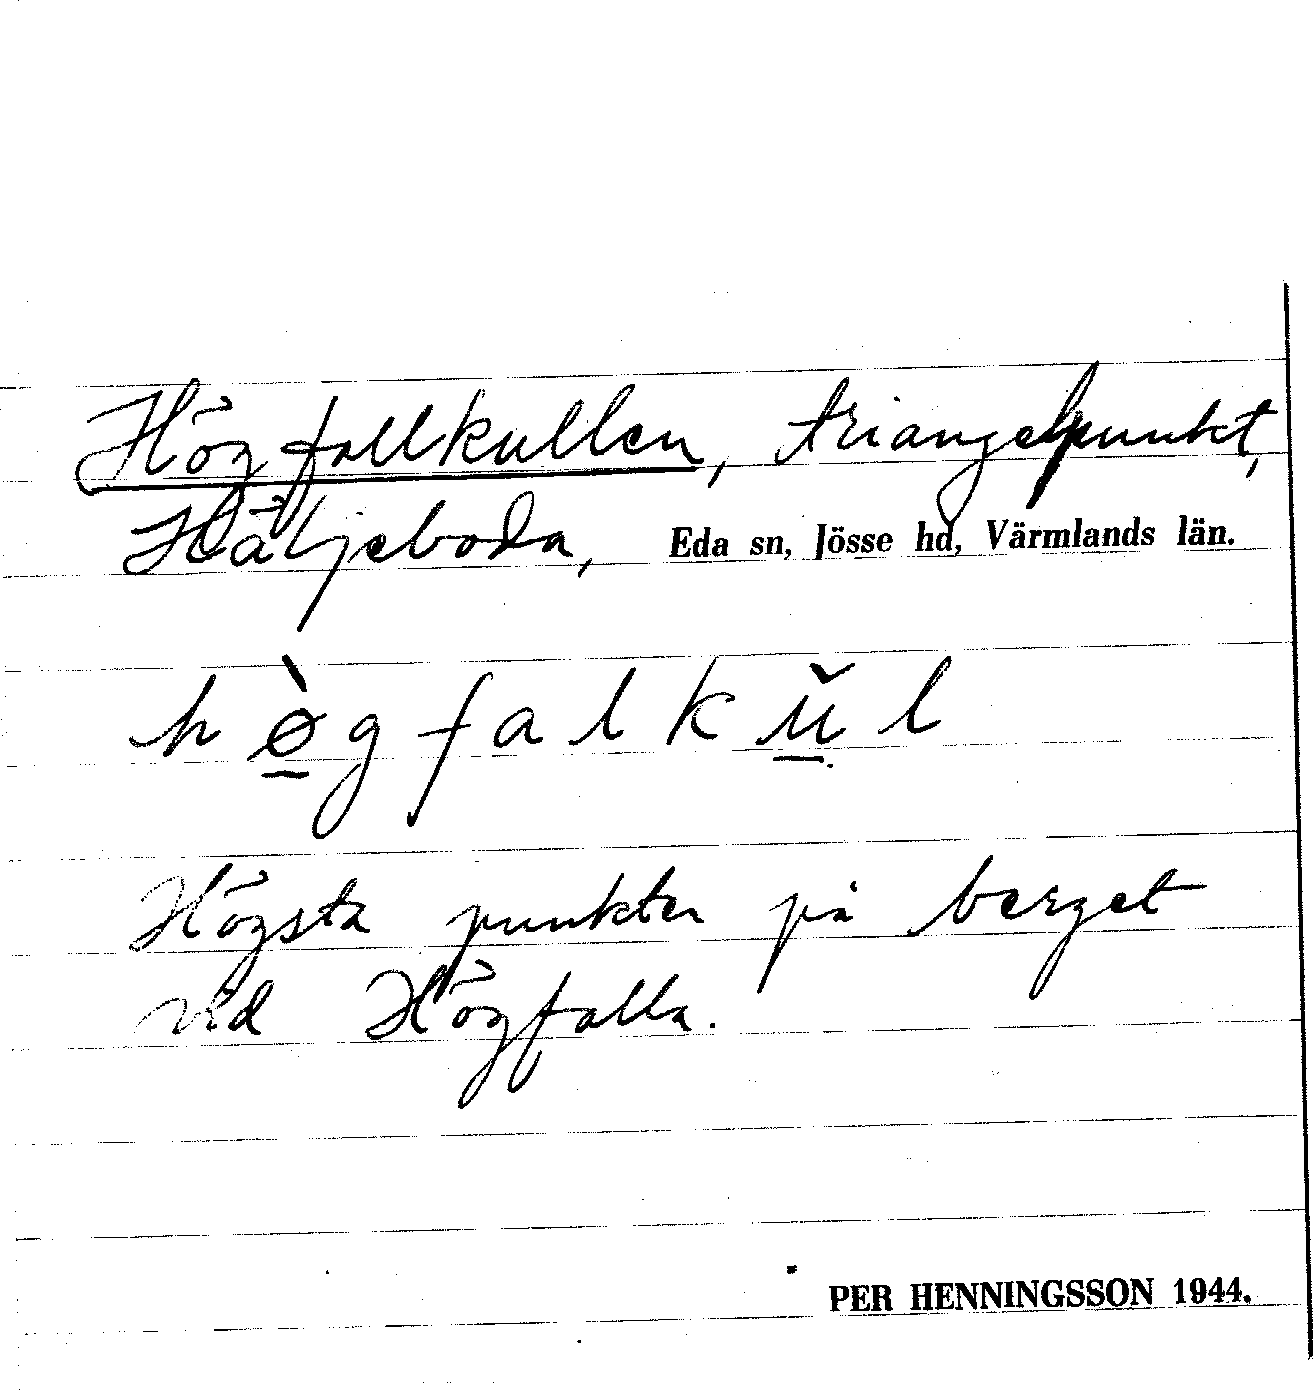 Högfallkullen, triangelpunkt,
Häljeboda, Eda sn, Jösse hd, Värmlands län.
hø̠̀gfalkŭ̠l
Högsta punkten på berget
vid Högfalla.
PER HENNINGSSON 1944.